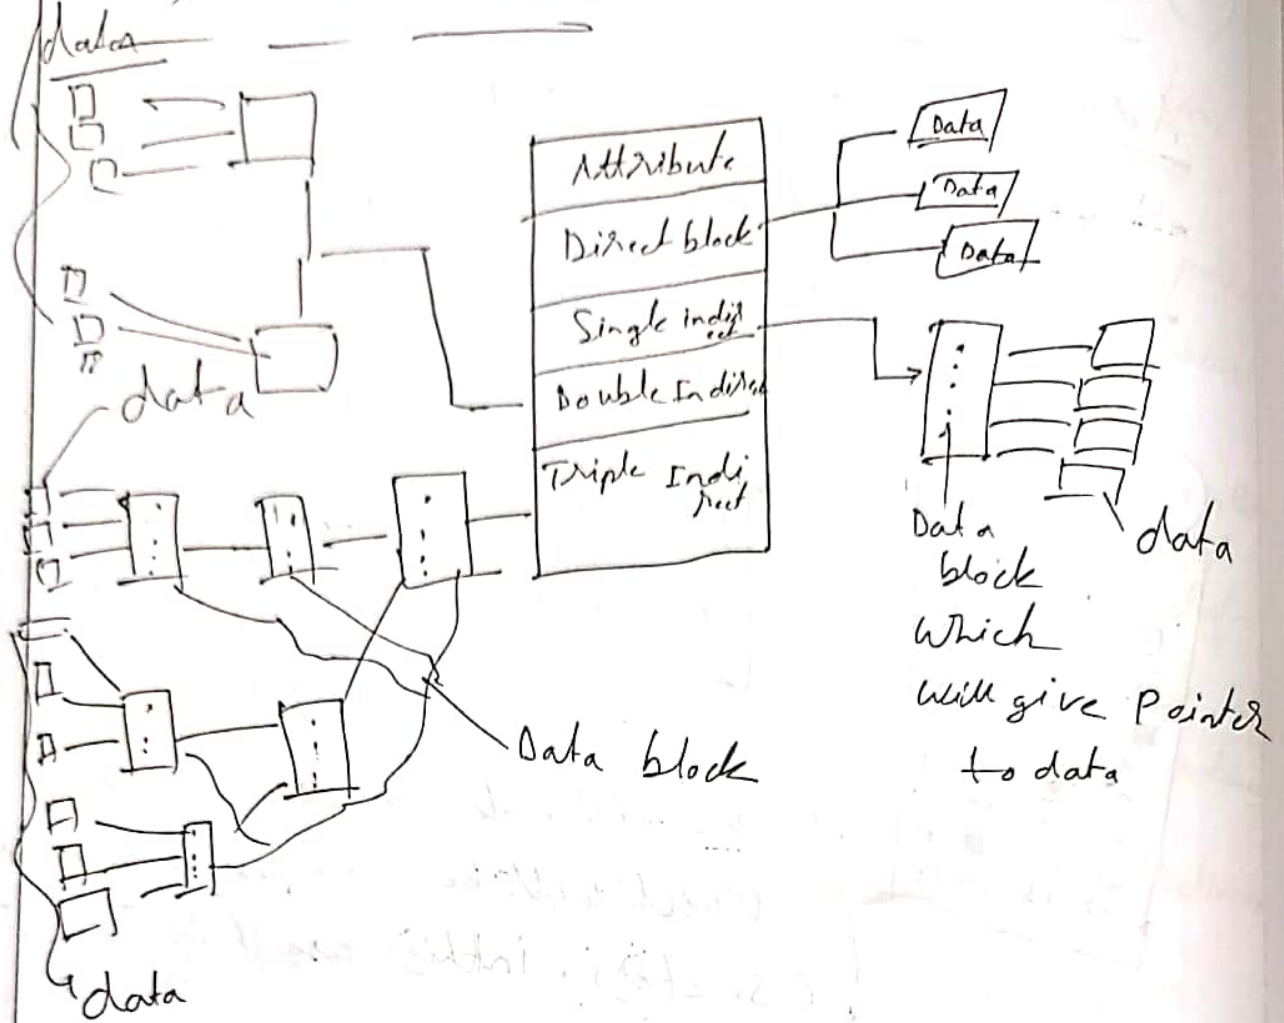 data
Attribute
Direct block
Single indir
ect
Double Indirect
Triple Indi
rect
Data
Data
Data
data
Data
block
which
will give Pointer
to data
data
Data block
data